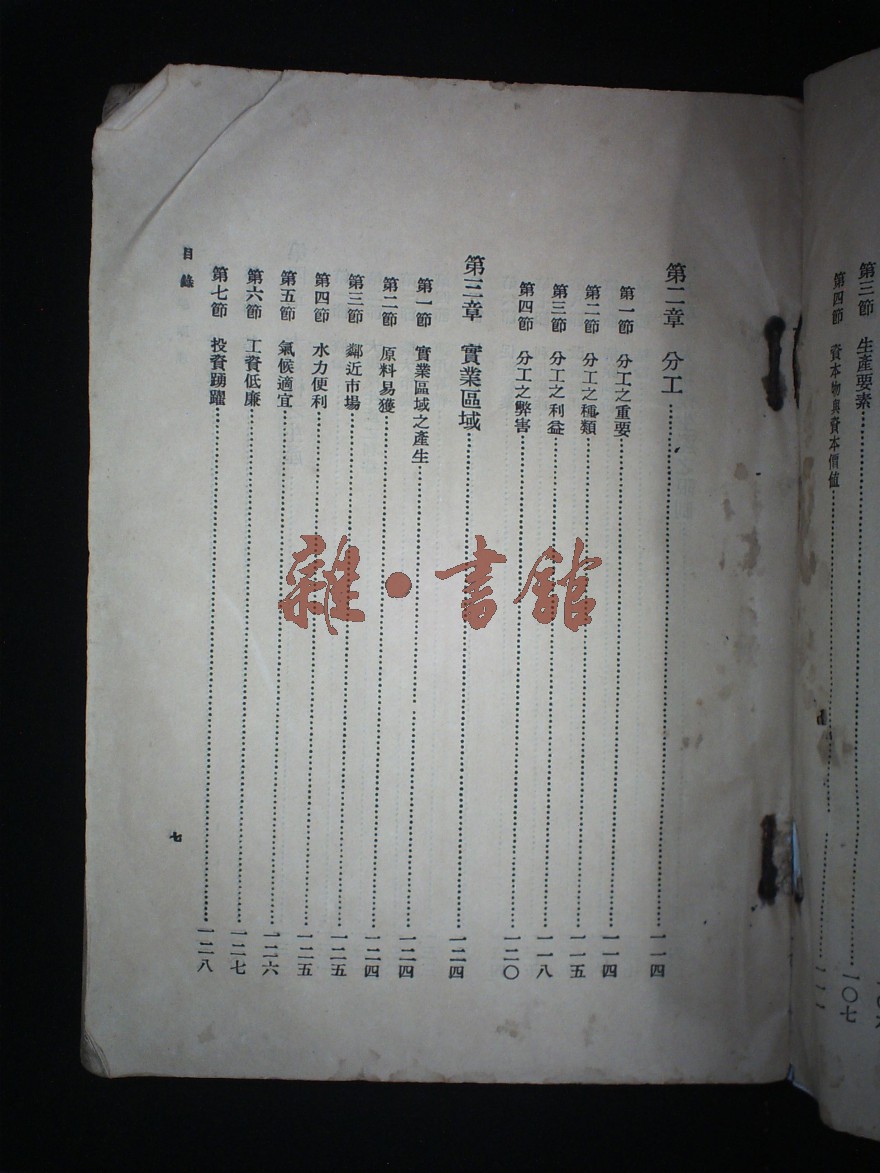 第三節　生產要素……一〇七
第四節　資本物與資本價值……一一一
第二章　分工……一一四
第一節　分工之重要……一一四
第二節　分工之種類……一一五
第三節　分工之利益……一一八
第四節　分工之弊害……一二〇
第三章　實業區域……一二四
第一節　實業區域之產生……一二四
第二節　原料易獲……一二四
第三節　鄰近市場……一二五
第四節　水力便利……一二五
第五節　氣候適宜……一二六
第六節　工資低廉……一二七
第七節　投資踴躍……一二八
目錄
七
雜·書館